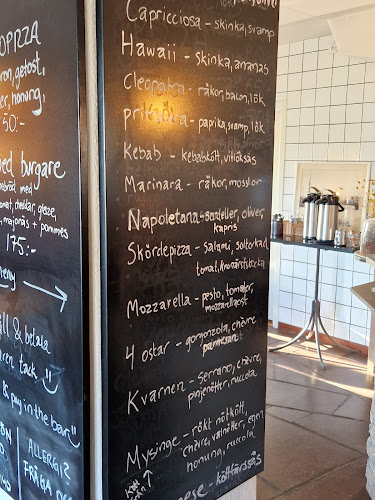 OPIZZA
ron, getost,
er, honung,
50:-
ed burgare
ebröd med
omat, cheddar, gleze,
, majonäs + pommes
175:-
eny
ll & betala
ren tack
& pay in the bar
ALLERGI?
FRÅGA
Capricciosa - skinka, svamp
Hawaii - skinka, ananas
Cleopatra - räkor, bacon, lök
- paprika, svamp, lök
Kebab - kebabkött, vitlöksås
Marinara - räkor, musslor
Napoletana - sardeller, oliver,
kapris
Skördepizza - salami, soltorkad
tomat, kronärtskocka
Mozzarella - pesto, tomater,
mozzarellaost
4 ostar - gorgonzola, chèvre,
parmesan
Kvarnen - serrano, chèvre,
pinjenötter, ruccola
Mysinge - rökt nötkött,
chèvre, valnötter, egen
honung, ruccola
ese - köttfärssås